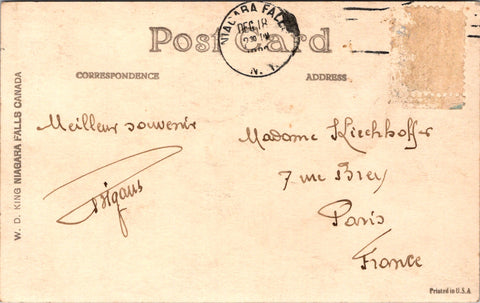 NIAGARA FALLS
DEC 18
N. Y.
Post Card
CORRESPONDENCE
ADDRESS
W. D. KING NIAGARA FALLS CANADA
Meilleur souvenir
Madame Kirchhoffer
7 rue Brey
Paris
France
Printed in U.S.A